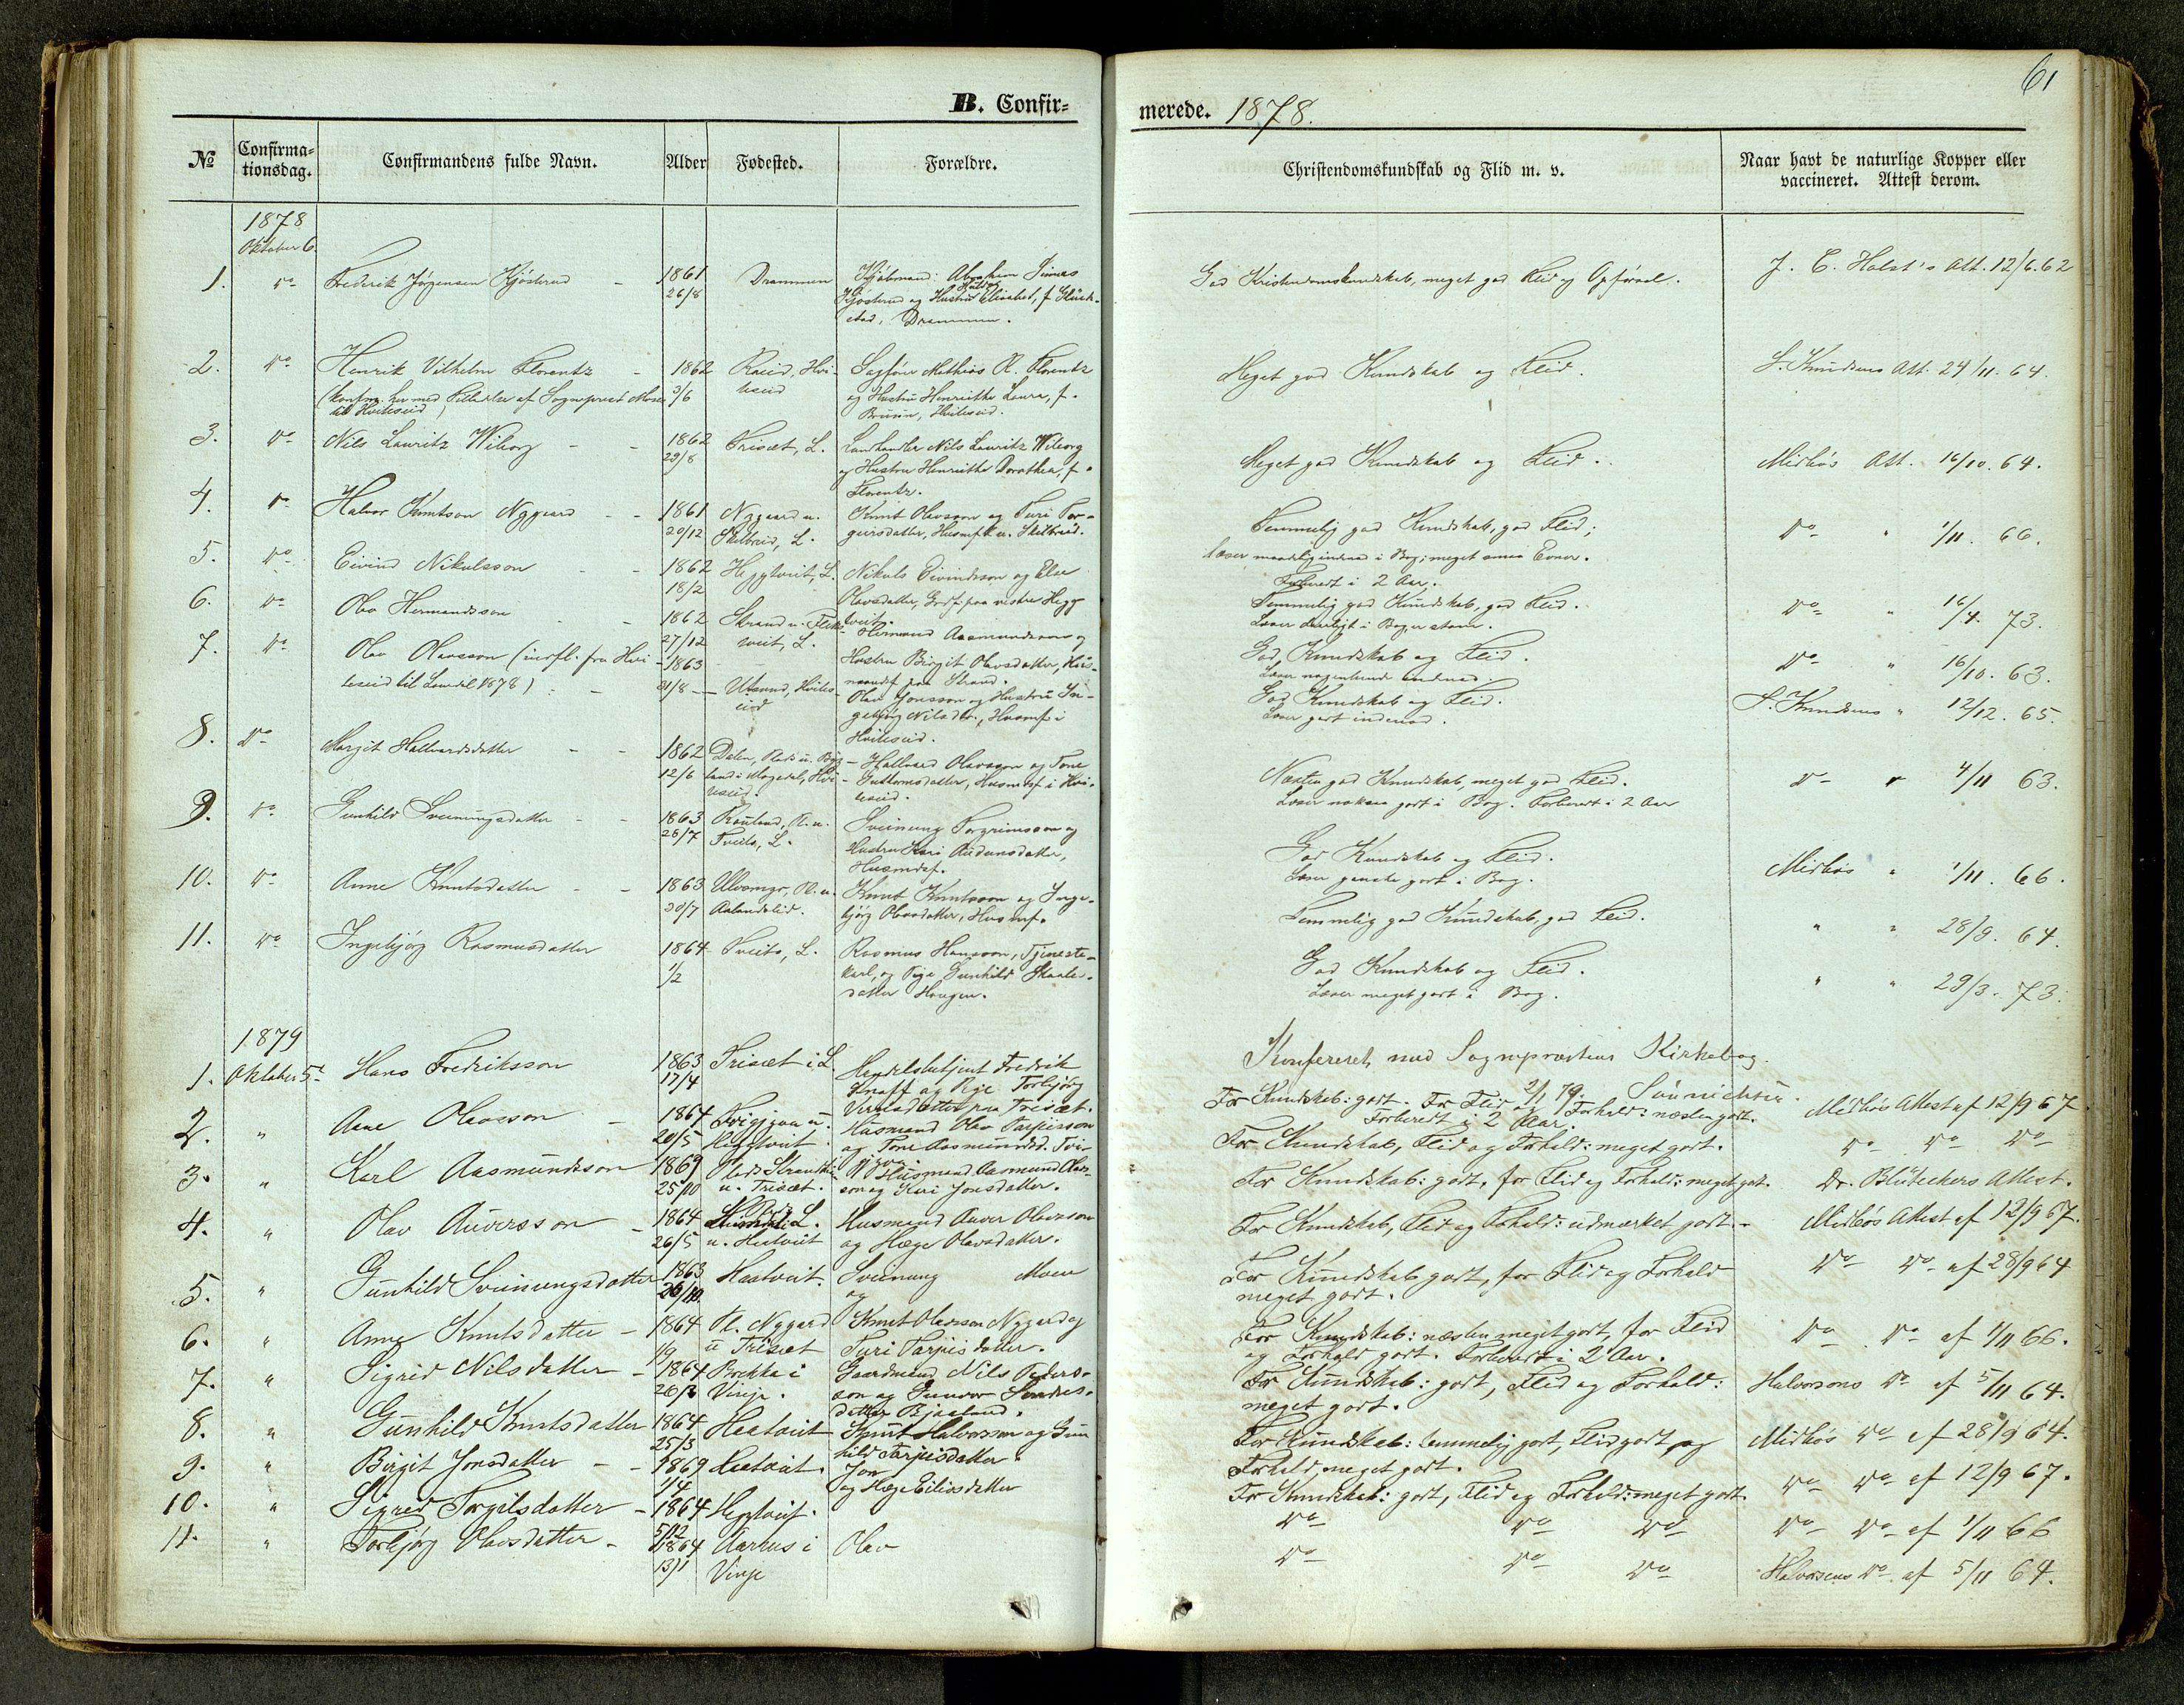 61
B. Confir= merede. 1878.
№
Confirma=
tionsdag.
Confirmandens fulde Navn.
Alder
Fødested.
Forældre.
Christendomskundskab og Flid m. v.
Naar havt de naturlige Kopper eller
vaccineret. Attest derom.
1878
Oktober 6.
1. do Frederik Jørgensen Kjøsterud 1861 Drammen Kjøbmand: Abraham
26/8 Kjøsterud og Hustru Elisabet, f. Glück-
stad, Drammen.
God Kristendomskundskab, meget god Flid og Opførsel. J. C. Holst's Att. 12/6.62
2. do Henrik Vilhelm Florentz 1862 Hvi- Sagfører Mathias R. Florentz
(konfirm. her med Tilladelse af Sognepræst Moe 3/6 teseid og Hustru Henriette Laura, f.
til Hviteseid) Bruun, Hviteseid.
Meget god Kundskab og Flid. S. Knudsens Att. 24/11. 64.
3. do Nils Lauritz Wiborg 1862 Trisæt, L. Landhandler Nils Lauritz Wiborg
29/8 og Hustru Henriette Dorothea, f.
Florentz.
Meget god Kundskab og Flid. Midbøs Att. 16/10. 64.
4. do Halvor Knutson Nygaard 1861 Nygaard u. Knut Olavsson og Turi Tor-
20/12 Skilbreid, L. geirsdatter, Husmfk u. Skilbreid.
Temmelig god Kundskab, god Flid;
læser maadelig indena i Bog; meget smaa Evner.
Forberedt i 2 Aar.
do " 1/11. 66.
5. do Eivind Nikulsson 1862 Heggtveit, L. Nikuls Eivindsson og Else
18/2 Olavsdatter, Grdf. paa vestre Hegg
tveit.
Temmelig god Kundskab, god Flid.
Læser daarligt i Bog,
do " 16/4. 73.
6. do Olav Hermandsson 1862 Strand u. Hermand Aasmundsson og
27/12 tveit, L. Hustru Birgit Olavsdatter, Hus-
mandsf. paa Strand.
God Kundskab og Flid.
Læser nogenlunde indena.
do " 16/10. 63.
7. do Olav Olavsson (indfl. fra Hvi- 1863
teseid til Laurdal 1878) 31/8 Utsund, Hvites- Olav Jonsson og Hustru In-
eid gebjørg Nilsdtr., Husmf. i
Hviteseid.
God Kundskab og Flid.
Læser godt indena.
S. Knudsens " 12/12. 65.
8. do Margit Hallvardsdatter 1862 Dalen, Plads u. Byg- Hallvard Olavsson og Tone
12/6 land i Morgedal, Hvi- Guttormsdatter, Husmdsf. i Hvi-
teseid. teseid.
Næsten god Kundskab, meget god Flid.
Læser noksaa godt i Bog. Forberedt i 2 Aar
do " 4/11 63.
9. do Gunhild Sveinungsdatter 1863 Rauland, Pl. u. Sveinung Torgrimsson og
26/7 Tveito, L. Hustru Kari Audunsdatter,
Husmdsf.
God Kundskab og Flid.
Læser ganske godt i Bog.
Midbøs " 1/11. 66.
10. do Anne Knutsdatter 1863 Pl. u. Knut Knutsson og Inge-
30/7 Aalandslid. bjørg Olavsdatter, Husmf.
Temmelig god Kundskab, god Flid.
" " 28/9. 64.
11. do Ingebjørg Rasmusdatter 1864 Tveito, L. Rasmus Hansson, Tjeneste-
1/2 karl, og Pige Gunhild
datter Haugen.
God Kundskab og Flid.
Læser meget godt i Bog.
" " 29/3. 73.
Konfereret med Sognepræstens Kirkebog.
2/1 79.
1879
1. Oktober 5te Hans Fredriksson 1863 Trisæt i L. Handelsbetjent Fredrik
17/4 og Pige Torbjørg
datter paa Trisæt.
For Kundskab: godt. For Flid og Forhold: næsten godt.
Forberedt i 2 Aar.
Midbøs Attest af 12/9 67.
2. " Aane Olavsson 1864 u. Husmand Olav Tarjeisson
20/5 Heggtveit. og Tone Aasmundsd.
For Kundskab, Flid og Forhold: meget godt.
do do do
3. " Karl Aasmundsson 1869 Plads Husmand Aasmund Olav-
25/10 u. Trisæt. son og Kari Jonsdatter.
For Kundskab: godt, for Flid og Forhold: meget godt. Dr. Attest.
4. " Olav Auversson 1864 L. Husmand Auver Olavsson
26/5 u. Heitveit og Hæge Olavsdatter.
For Kundskab, Flid og Forhold: udmærket godt. Midbøs Attest af 12/9 67.
5. " Gunhild Sveinungsdatter 1863 Haatveit. Sveinung Moen
26/10. og
For Kundskab godt, for Flid og Forhold
meget godt.
do do af 28/9 64
6. " Anne Knutsdatter 1864 Pl. Nygard Knut Olavsson Nygard og
1/9 u Trisæt Turi Tarjeisdatter.
For Kundskab: næsten meget godt, for Flid
og Forhold godt. Forberedt i 2 Aar.
do do af 1/11 66.
7. " Sigrid Nilsdatter 1864 Brekka i Gaardmand Nils Peders-
Vinje. son og Gunvor
datter Bjaaland.
For Kundskab: godt, Flid og Forhold:
meget godt.
Halvorsens do af 5/11 64.
8. " Gunhild Knutsdatter 1864 Haatveit Knut Halvorsson og Gun
25/3 hild Tarjeisdatter
For Kundskab: temmelig godt, Flid godt og
Forhold meget godt.
Midbøs do af 28/9 64.
9. " Birgit Jonsdatter 1869 Haatveit. Jon
1/4 og Hæge Eilivsdatter
For Kundskab: godt, Flid og Forhold: meget godt. do do af 12/9 67.
10. " Sigrid Torgilsdatter 1864 Heggtveit.
5/12
do do do do do af 1/11 66
11. " Torbjørg Olavsdatter 1864 Aarhus i Olav
13/1 Vinje
do do do Halvorsens do af 5/11 64.